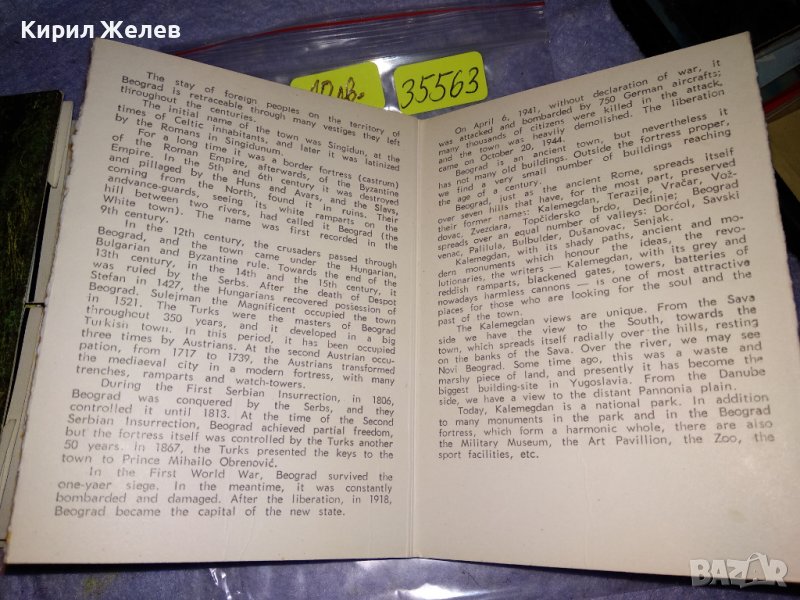 Кирил Желев
35563
The stay of foreign peoples on the territory of
Beograd is retraceable through many vestiges they left
throughout the centuries.
The initial name of the town was Singidun, at the
times of Celtic inhabitants, and later it was latinized
by the Romans in Singidunum.
For a long time it was a border fortress (castrum)
of the Roman Empire, afterwards, of the Byzantine
Empire. In the 5th and 6th century it was destroyed
and pillaged by the Huns and Avars, and the Slavs,
coming from the North, found it in ruins. Their
andvance-guards, seeing its white ramparts on the
hill between two rivers, had called it Beograd (the
White town). The name was first recorded in the
9th century.
In the 12th century, the crusaders passed through
Beograd, and the town came under the Hungarian,
Bulgarian and Byzantine rule. Towards the end of the
13th century, in the 14th and the 15th century, it
was ruled by the Serbs. After the death of Despot
Stefan in 1427, the Hungarians recovered possession of
Beograd. Sulejman the Magnificent occupied the town
in 1521. The Turks were the masters of Beograd
throughout 350 years, and it developed in a big
Turkish town. In this period, it has been occupied
three times by Austrians. At the second Austrian occu-
pation, from 1717 to 1739, the Austrians transformed
the mediaeval city in a modern fortress, with many
trenches, ramparts and watch-towers.
During the First Serbian Insurrection, in 1806,
Beograd was conquered by the Serbs, and they
controlled it until 1813. At the time of the Second
Serbian Insurrection, Beograd achieved partial freedom,
but the fortress itself was controlled by the Turks another
50 years. In 1867, the Turks presented the keys to the
town to Prince Mihailo Obrenović.
In the First World War, Beograd survived the
one-yaer siege. In the meantime, it was constantly
bombarded and damaged. After the liberation, in 1918,
Beograd became the capital of the new state.
On April 6, 1941, without declaration of war, it
was attacked and bombarded by 750 German aircrafts;
many thousands of citizens were killed in the attack,
and the town was heavily demolished. The liberation
came on October 20, 1944.
Beograd is an ancient town, but nevertheless it
has not many old buildings. Outside the fortress proper,
we find a very small number of buildings reaching
the age of a century.
Beograd, just as the ancient Rome, spreads itself
over seven hills that have, for the most part, preserved
their former names: Kalemegdan, Terazije, Vračar, Vož-
dovac, Zvezdara, Topčidersko brdo, Dedinje; Beograd
spreads over an equal number of valleys: Dorćol, Savski
venac, Palilula, Bulbulder, Dušanovac, Senjak.
Kalemegdan, with its shady paths, ancient and mo-
dern monuments which honour the ideas, the revo-
lutionaries, the writers — Kalemegdan, with its grey and
reddish ramparts, blackened gates, towers, batteries of
nowadays harmless cannons — is one of most attractive
places for those who are looking for the soul and the
past of the town.
The Kalemegdan views are unique. From the Sava
side we have the view to the South, towards the
town, which spreads itself radially over the hills, resting
on the banks of the Sava. Over the river, we may see
Novi Beograd. Some time ago, this was a waste and
marshy piece of land, and presently it has become the
biggest building-site in Yugoslavia. From the Danube
side, we have a view to the distant Pannonia plain.
Today, Kalemegdan is a national park. In addition
to many monuments in the park and in the Beograd
fortress, which form a harmonic whole, there are also
the Military Museum, the Art Pavillion, the Zoo, the
sport facilities, etc.
BAZAR